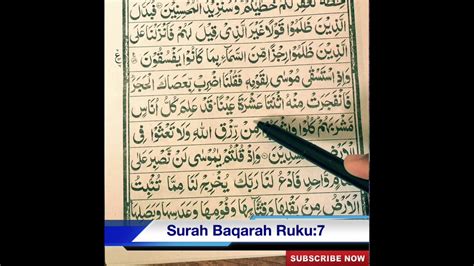 حِطَّةٌ نَّغْفِرْ لَكُمْ خَطٰيٰكُمْ وَسَنَزِيْدُ الْمُحْسِنِيْنَ فَبَدَّلَ
الَّذِيْنَ ظَلَمُوْا قَوْلًا غَيْرَ الَّذِيْ قِيْلَ لَهُمْ فَاَنْزَلْنَا عَلَى
الَّذِيْنَ ظَلَمُوْا رِجْزًا مِّنَ السَّمَآءِ بِمَا كَانُوْا يَفْسُقُوْنَ
وَاِذِ اسْتَسْقٰى مُوْسٰى لِقَوْمِهٖ فَقُلْنَا اضْرِبْ بِّعَصَاكَ الْحَجَرَ
فَانْفَجَرَتْ مِنْهُ اثْنَتَا عَشْرَةَ عَيْنًا قَدْ عَلِمَ كُلُّ اُنَاسٍ
مَّشْرَبَهُمْ كُلُوْا وَاشْرَبُوْا مِنْ رِّزْقِ اللّٰهِ وَلَا تَعْثَوْا فِى
الْاَرْضِ مُفْسِدِيْنَ وَاِذْ قُلْتُمْ يٰمُوْسٰى لَنْ نَّصْبِرَ عَلٰى
طَعَامٍ وَّاحِدٍ فَادْعُ لَنَا رَبَّكَ يُخْرِجْ لَنَا مِمَّا تُنْۢبِتُ
الْاَرْضُ مِنْۢ بَقْلِهَا وَقِثَّآئِهَا وَفُوْمِهَا وَعَدَسِهَا وَبَصَلِهَا
Surah Baqarah Ruku:7
SUBSCRIBE NOW